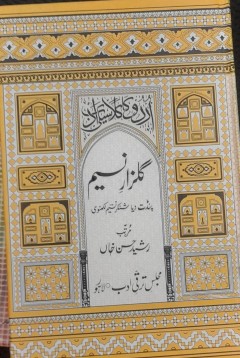 اُردو کا کلاسیکی ادب
گلزارِ نسیم
پنڈت دیا شنکر نسیم لکھنوی
مرتب
رشید حسن خاں
مجلس ترقی ادب لاہور